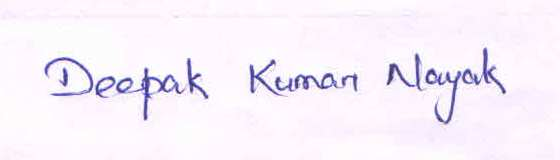 Deepak Kumar Nayak